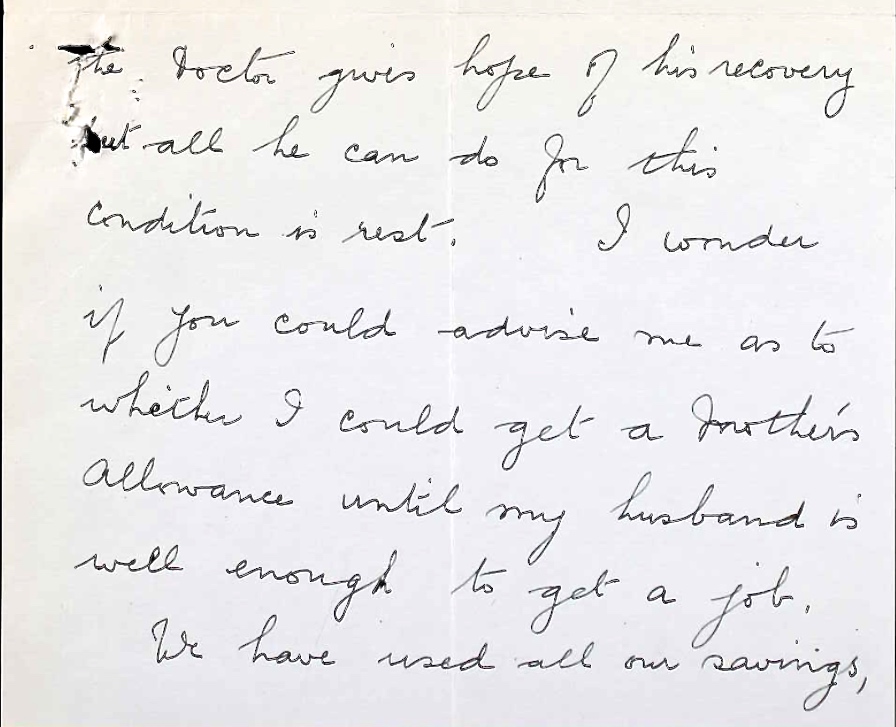 the Doctor gives hope of his recovery
but all he can do for this
condition is rest. I wonder
if you could advise me as to
whether I could get a Mother's
Allowance until my husband is
well enough to get a job.
We have used all our savings,